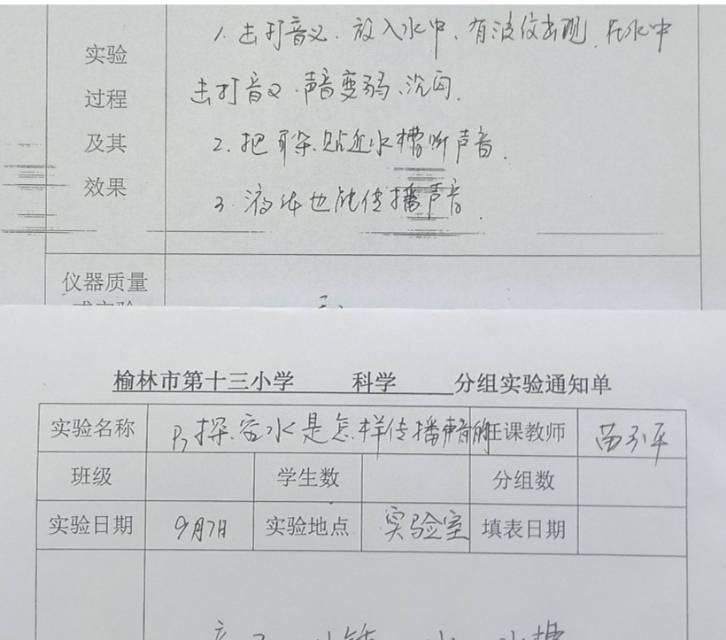 实验
过程
及其
效果
1. 击打音叉. 放入水中, 有波纹出现. 在水中
击打音叉. 声音变弱、沉闷.
2. 把耳朵贴近水槽听声音.
3. 液体也能传播声音.
仪器质量
榆林市第十三小学 科学 分组实验通知单
实验名称 P3探究水是怎样传播声音的 任课教师
班级 学生数 分组数
实验日期 9月7日 实验地点 实验室 填表日期